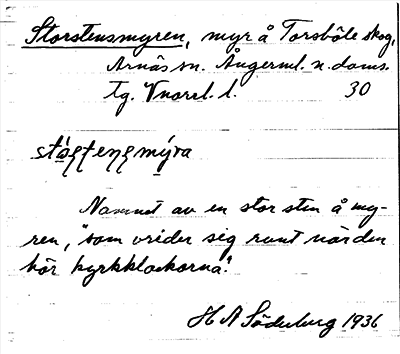 Storstensmyren, myr å Torsböle skog,
Arnäs sn. Ångerml. n. doms.
Tg. Vnorrl. l. 30
Namnet av en stor sten å my-
ren, "som vrider sig runt när den
hör kyrkklockorna".
H A Söderberg 1936